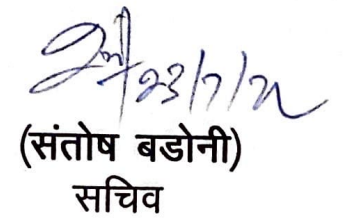 23/7/22
(संतोष बडोनी)
सचिव